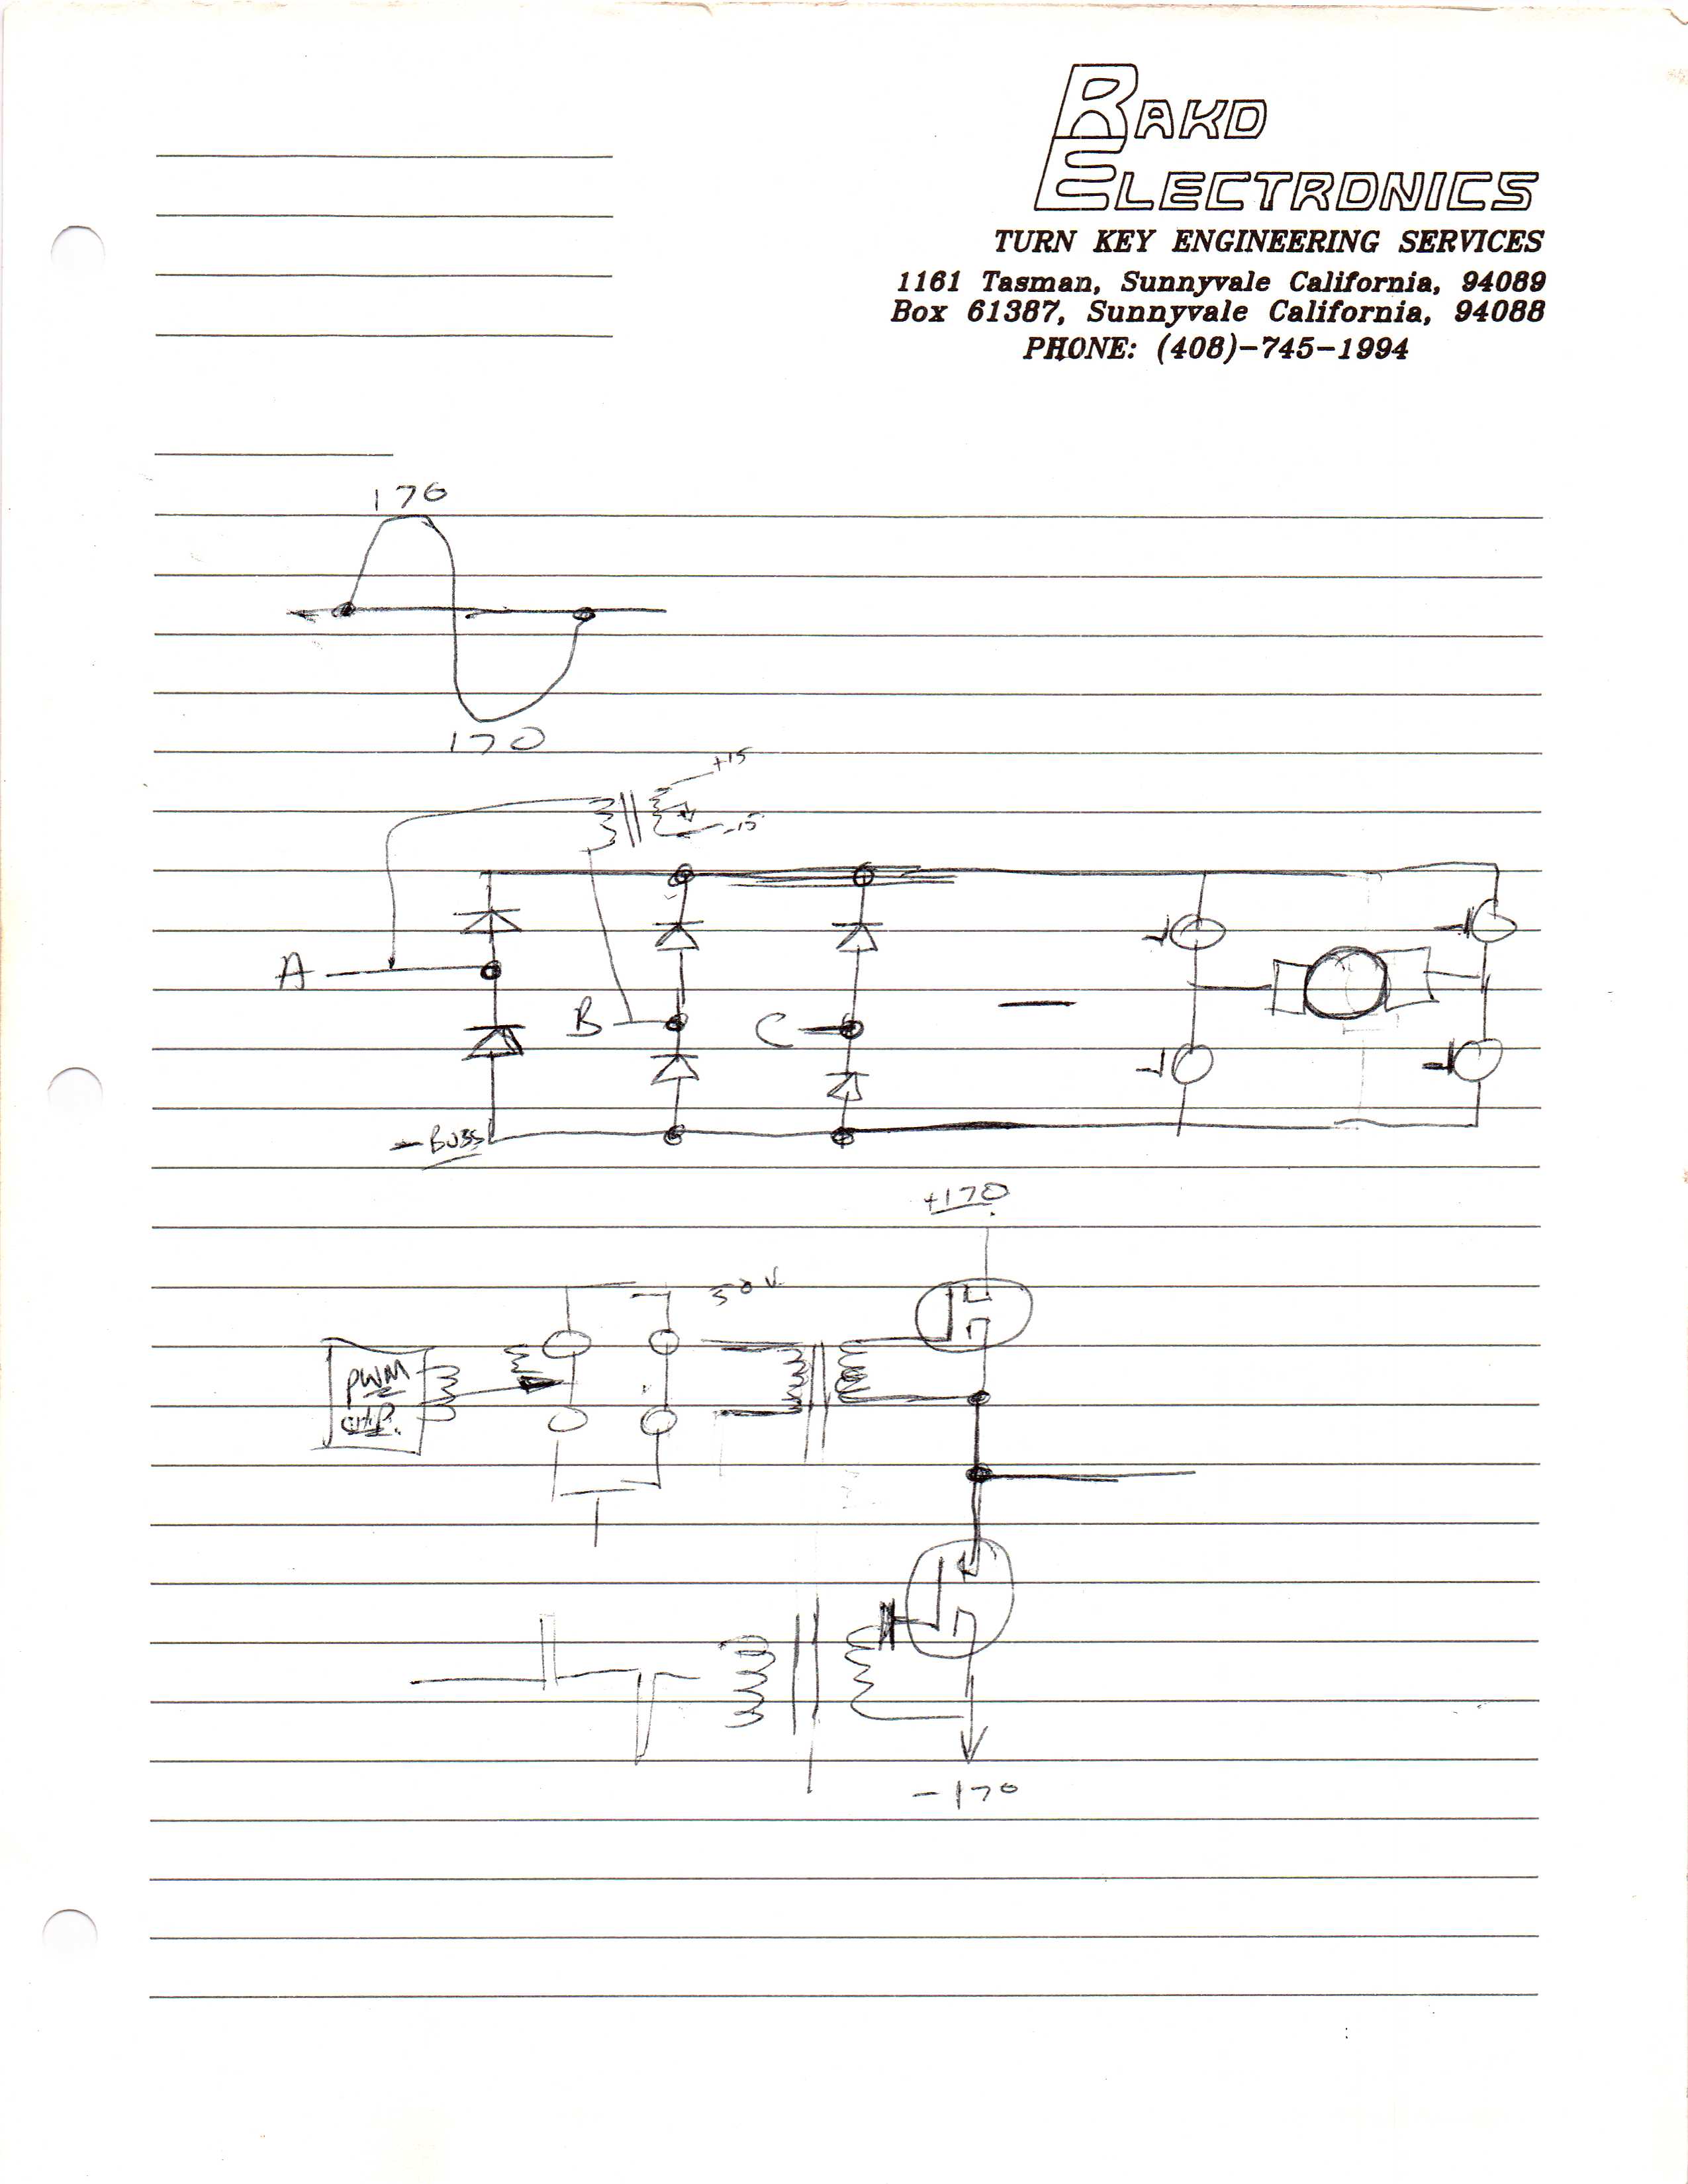 RAKO
ELECTRONICS
TURN KEY ENGINEERING SERVICES
1161 Tasman, Sunnyvale California, 94089
Box 61387, Sunnyvale California, 94088
PHONE: (408)-745-1994
170
170
+15
-15
A
B
C
- BUSS
+170
50 V
PWM
CHIP.
-170